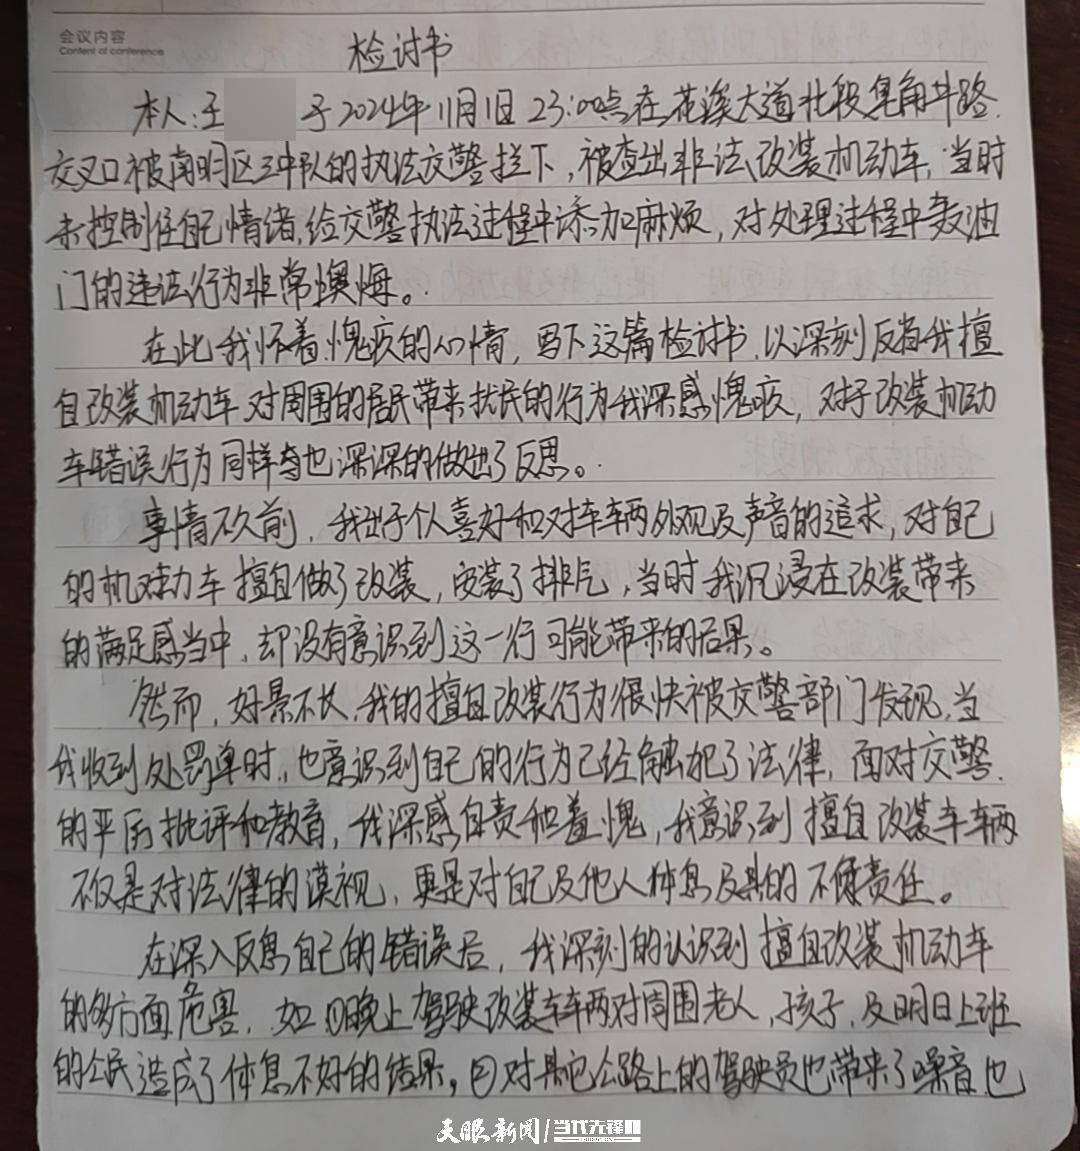 会议内容
Content of conference
检讨书
本人:王 于2024年11月1日23:00点在花溪大道北段皂角井路
交叉口被南明区三中队的执法交警拦下,被查出非法改装机动车,当时
未控制住自己情绪,给交警执法过程中添加麻烦,对处理过程中轰油
门的违法行为非常懊悔。
在此我怀着愧疚的心情,写下这篇检讨书,以深刻反省我擅
自改装机动车对周围的居民带来扰民的行为我深感愧疚,对于改装机动
车错误行为同样也深深的做出了反思。
事情不久前,我出于个人喜好和对车辆外观及声音的追求,对自己
的机动车擅自做了改装,安装了排气,当时我沉浸在改装带来
的满足感当中,却没有意识到这一行可能带来的后果。
然而,好景不长,我的擅自改装行为很快被交警部门发现,当
我收到处罚单时,也意识到自己的行为已经触犯了法律,面对交警
的平厉批评和教育,我深感自责和羞愧,我意识到擅自改装车辆
不仅是对法律的漠视,更是对自己及他人休息及其的不负责任。
在深入反思自己的错误后,我深刻的认识到擅自改装机动车
的多方面危害,如①晚上驾驶改装车辆对周围老人,孩子,及明日上班
的公民造成了休息不好的结果,②对其它公路上的驾驶员也带来了噪音也
天眼新闻/当代先锋网